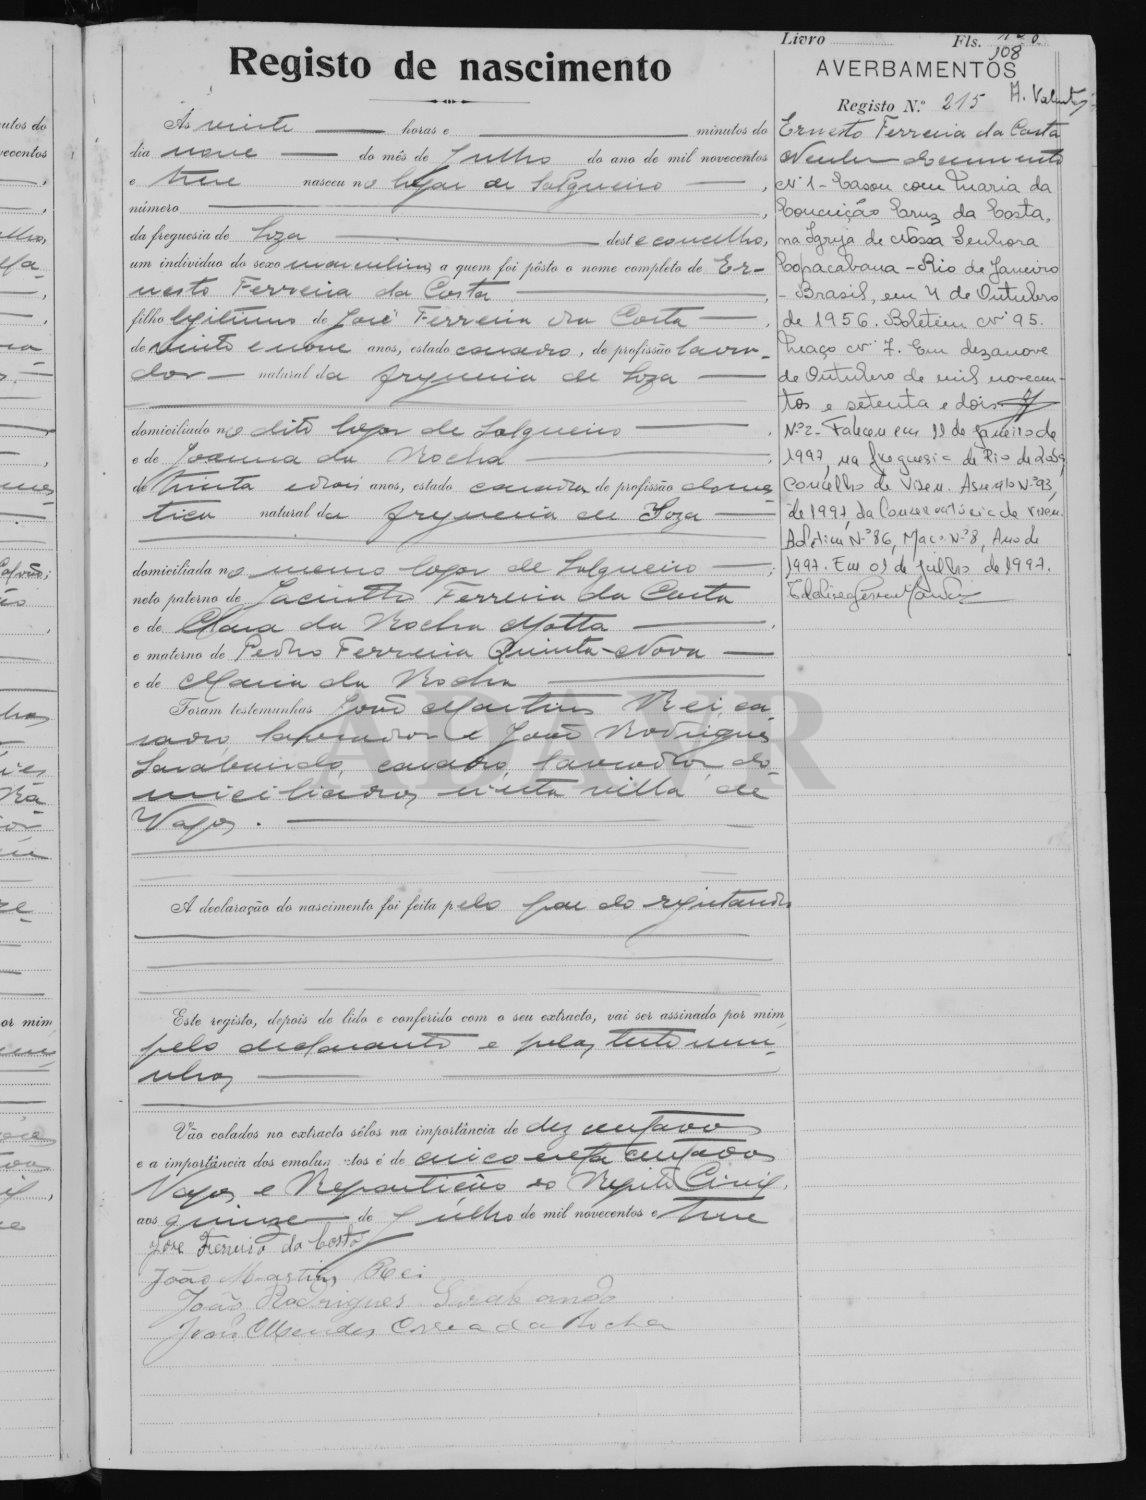 Livro Fls. 108
Registo de nascimento
AVERBAMENTOS
Registo N.º 215
Às vinte horas e minutos do
dia nove do mês de Julho do ano de mil novecentos
e treze nasceu no logar de Salgueiro ,
número ,
da freguesia de Soza deste concelho,
um indivíduo do sexo masculino, a quem foi pôsto o nome completo de Er-
nesto Ferreira da Costa ,
filho legitimo de José Ferreira da Costa ,
de vinte e nove anos, estado casado, de profissão lavra-
dor natural da freguesia de Soza
domiciliado no dito logar de Salgueiro ,
e de Joanna da Rocha ,
de trinta e dois anos, estado casada de profissão domes-
tica natural da freguesia de Soza
domiciliada no mesmo logar de Salgueiro ;
neto paterno de Jacintho Ferreira da Costa
e de Clara da Rocha Motta ,
e materno de Pedro Ferreira Quinta-Nova
e de Maria da Rocha
Foram testemunhas João Martins Rei, ca-
sado, lavrador e João Rodrigues
Sarabando, casado, lavrador, do-
miciliados n'esta villa de
Vagos.
A declaração do nascimento foi feita pelo pae do registando
Este registo, depois de lido e conferido com o seu extracto, vai ser assinado por mim,
pelo declarante e pelas testemu-
nhas
Vão colados no extracto sêlos na importância de dez centavos
e a importância dos emolumentos é de cincoenta centavos
Vagos e Repartição do Registo Civil,
aos quinze de Julho de mil novecentos e treze
José Ferreira da Costa
João Martins Rei
João Rodrigues Sarabando
João Mendes Correa da Rocha
Ernesto Ferreira da Costa
Nenhum documento
Nº 1 - Casou com Maria da
Conceição Cruz da Costa,
na Igreja de Nossa Senhora
Copacabana - Rio de Janeiro
- Brasil, em 4 de Outubro
de 1956. Boletim nº 95.
Maço nº 7. Em dezanove
de Outubro de mil novecen-
tos e setenta e dois.
Nº 2 - Faleceu em 11 de Janeiro de
1997, na freguesia de Rio de Loba,
Concelho de Viseu. Assento Nº 93,
de 1997, da Conservatória de Viseu.
Boletim Nº 86, Maço Nº 8, Ano de
1997. Em 01 de Julho de 1997.
ADAVR